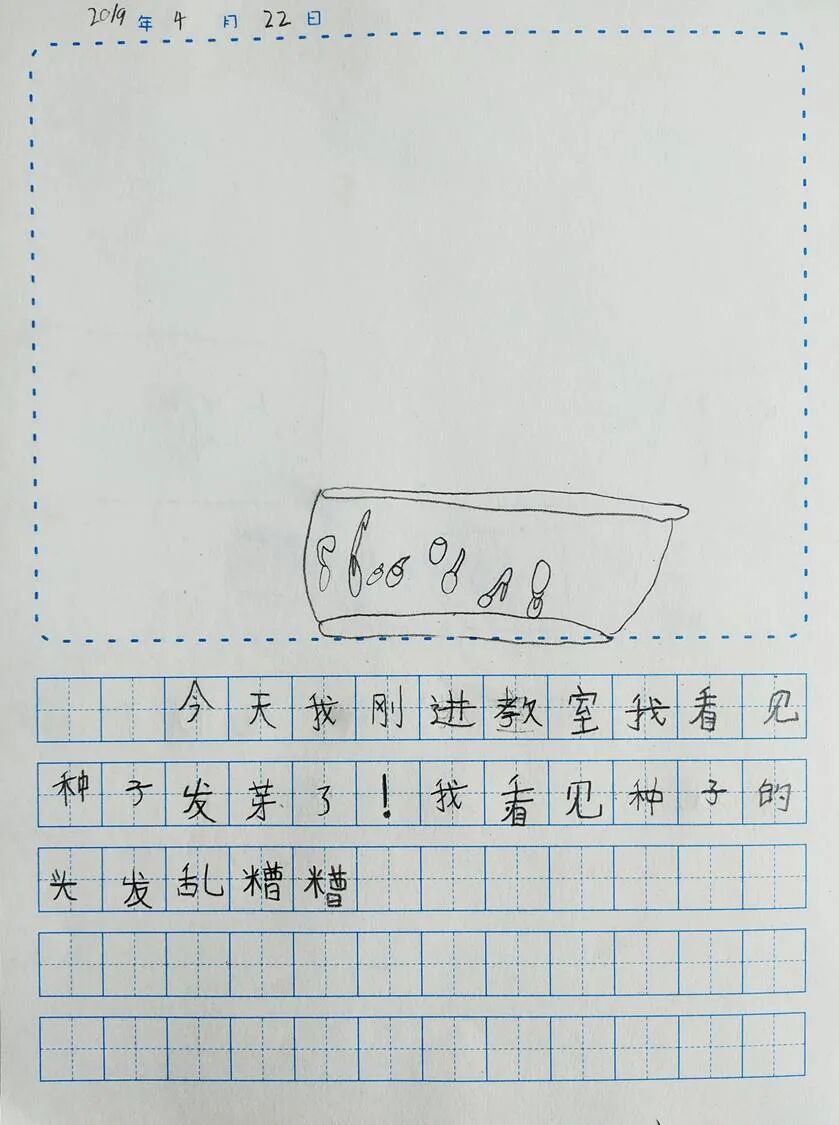 2019年4月22日
今天我刚进教室我看见
种子发芽了！我看见种子的
头发乱糟糟